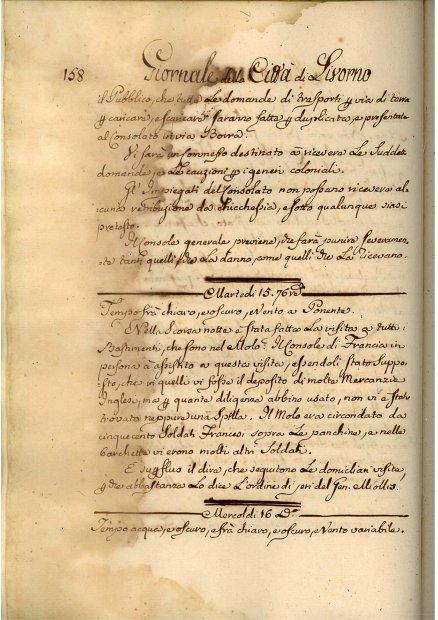 158 Giornale della Città di Livorno
il Pubblico, che tutte Le domande di trasporti p via di terra
p caricare, e scaricare saranno fatte p duplicata, e presentate
al Consolato in via Borra.
Vi sarà un Commesso destinato a ricevere Le Suddette
domande, e Le cauzioni p i generi coloniali.
Gl' Impiegati del Consolato non possano ricevere al-
cuna retribuzione da chicchessia, e sotto qualunque siasi
pretesto.
Il Console generale previene, che farà punire Severamen-
te tanti quelli che La danno, come quelli che La ricevano.
Martedi 15. 9bre
Tempo frà chiaro, e oscuro, e Vento a Ponente.
Nella Scorsa notte è stata fatta La visita a tutti i
Bastimenti, che sono nel Molo. Il Console di Francia in
persona à assistito a questa visita, essendoli stato Suppo-
sto, che vi quelli vi fosse il deposito di molte Mercanzie
Inglesi, ma p quante diligenze abbino usato, non vi è stata
trovata neppure una Spilla. Il Molo era circondato da
cinquecento Soldati Francesi sopra Le panchine, e nelle
barchette vi erono molti altri Soldati.
E superfluo il dire, che seguitono Le domiciliari visite,
p che abbastanza Lo dice L'ordine di jeri del Gen. Miollis.
Mercoldi 16 Do
Tempo acqua, e oscuro, e frà chiaro, e oscuro, e Vento variabile.